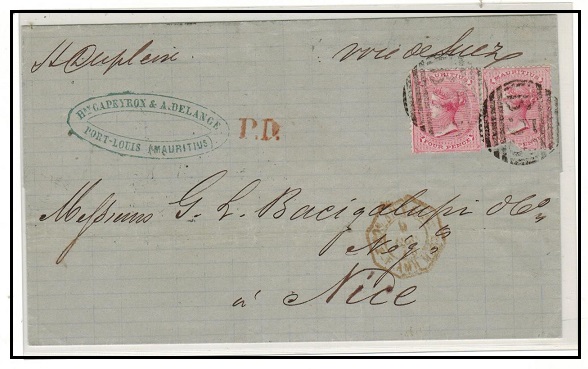 voie de Suez
Hte CAPEYRON & A. DELANGE
PORT-LOUIS (MAURITIUS)
P.D.
MAURITIUS
FOUR PENCE
MAURITIUS
FOUR PENCE
B
Messieurs G. L. Bacigalupi & Co
Negts
à Nice